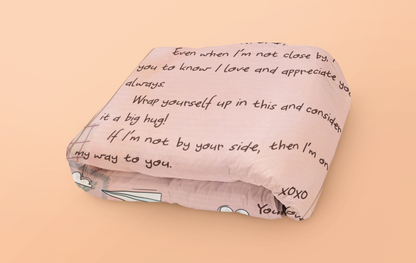 Even when I'm not close by, I
you to know I love and appreciate you
always.
Wrap yourself up in this and consider
it a big hug!
If I'm not by your side, then I'm on
my way to you.
XOXO